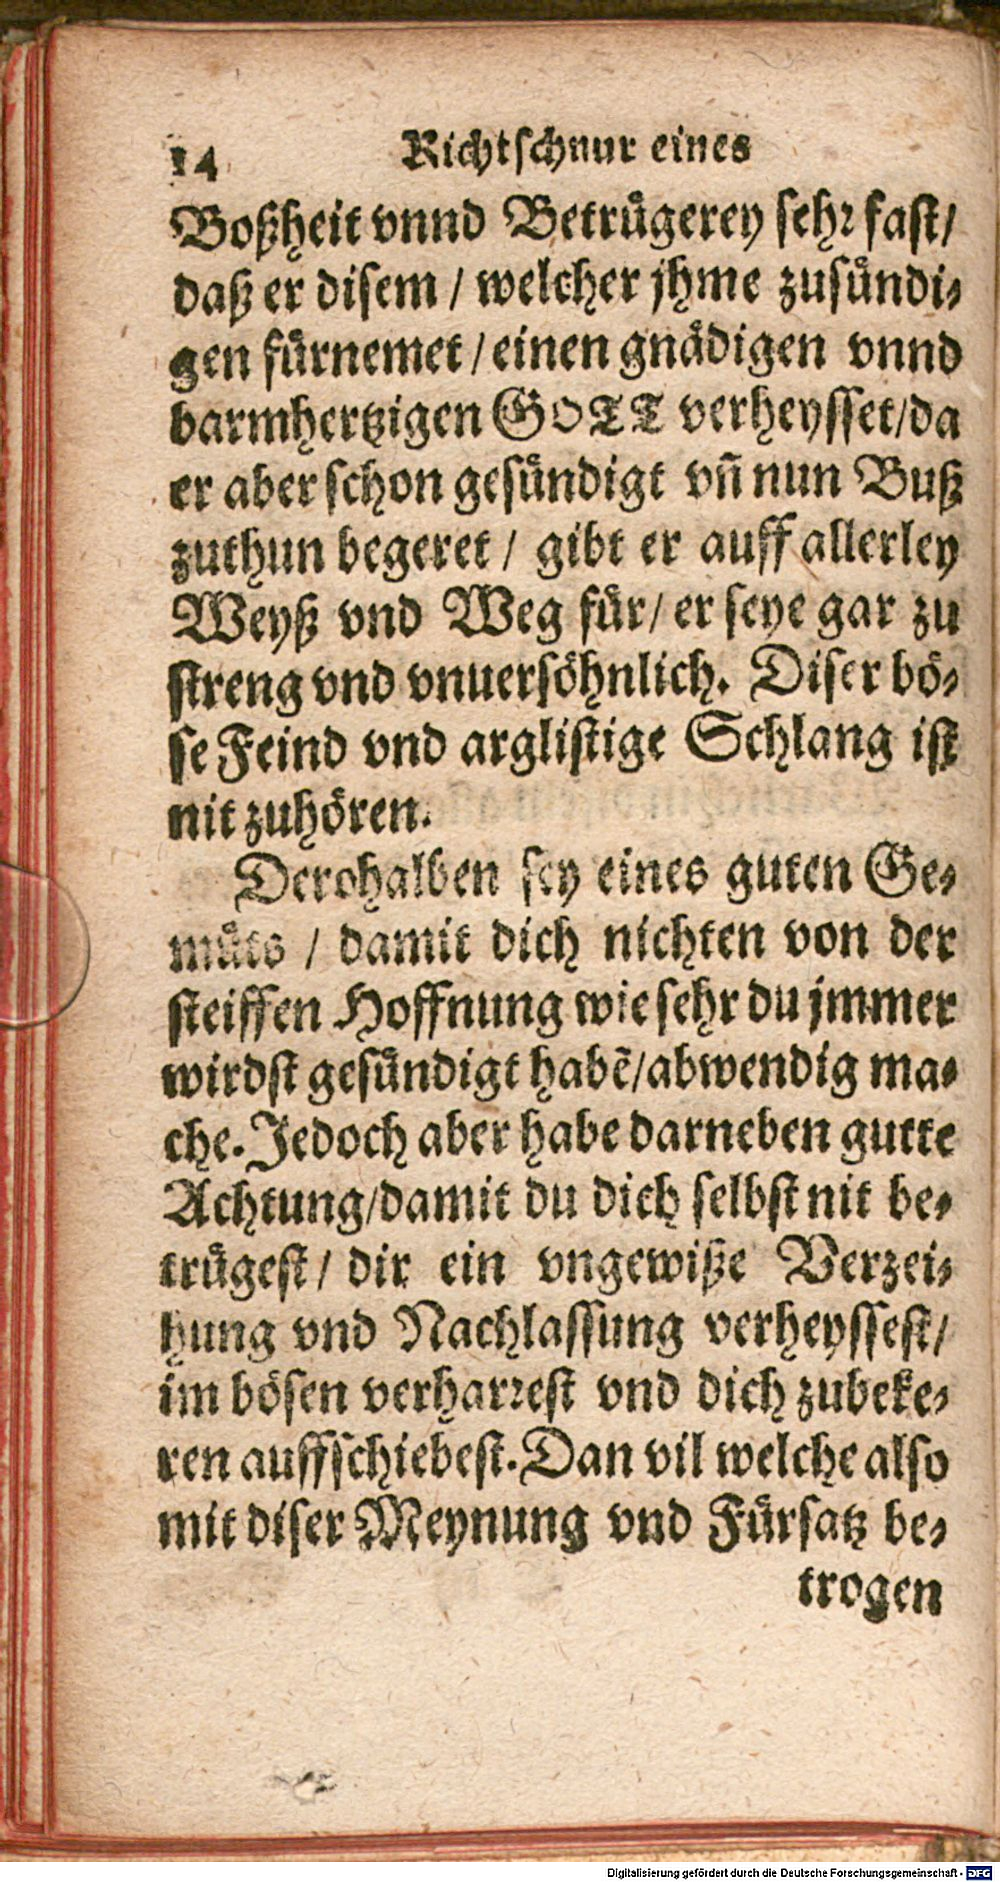 14 Richtschnur eines
Boßheit vnnd Betruͤgerey sehr fast/
daß er disem / welcher jhme zusuͤndi-
gen fuͤrnemet / einen gnaͤdigen vnnd
barmhertzigen GOTT verheysset/da
er aber schon gesuͤndigt vñ nun Buß
zuthun begeret / gibt er auff allerley
Weyß vnd Weg fuͤr/ er seye gar zu
streng vnd vnuersoͤhnlich. Diser boͤ-
se Feind vnd arglistige Schlang ist
nit zuhoͤren.
Derohalben sey eines guten Ge-
muͤts / damit dich nichten von der
steiffen Hoffnung wie sehr du jmmer
wirdst gesuͤndigt habẽ/abwendig ma-
che. Jedoch aber habe darneben gutte
Achtung/damit du dich selbst nit be-
truͤgest/ dir ein vngewiße Verzei-
hung vnd Nachlassung verheyssest/
im boͤsen verharrest vnd dich zubeke-
ren auffschiebest. Dan vil welche also
mit diser Meynung vnd Fuͤrsatz be-
trogen
Digitalisierung gefördert durch die Deutsche Forschungsgemeinschaft - DFG